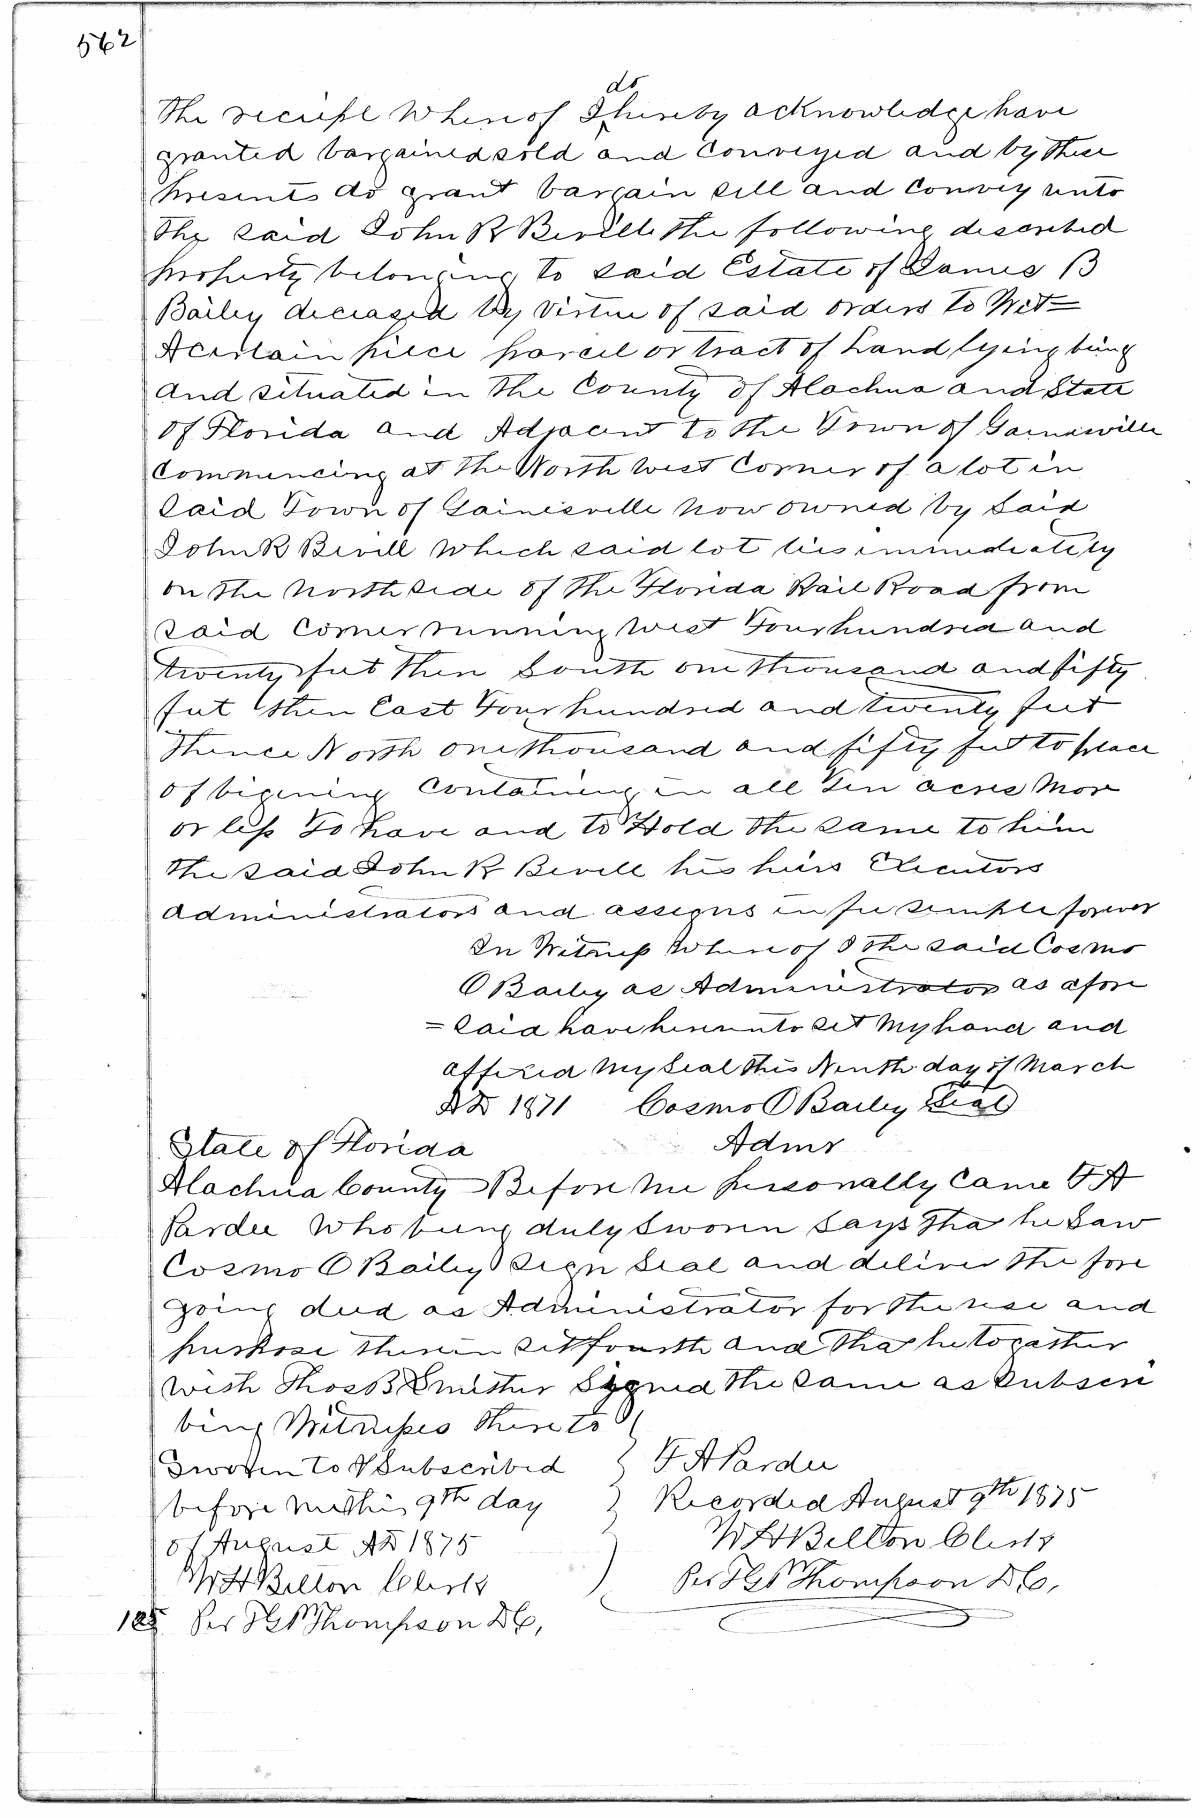 562
do
the reciept Where of I hereby acknowledge have
granted bargained sold and Conveyed and by these
Presents do grant bargain sell and convey unto
the said John R Bevill the following described
property belonging to said Estate of James B
Bailey deceased by virtue of said orders to Wit=
A certain piece parcel or tract of Land lying being
and situated in the County of Alachua and State
of Florida and Adjacent to the Town of Gainesville
Commencing at the North West Corner of a lot in
Said Town of Gainesville now owned by Said
John R Bevill which said lot lies immediately
on the north side of the Florida Rail Road from
said Corner running West Four hundred and
twenty feet then South one thousand and fifty
feet then East Four hundred and twenty feet
Thence North one thousand and fifty feet to place
of bigening Containing in all Ten acres More
or less To have and to Hold the same to him
the said John R Bevill his heirs Executors
administrators and assigns in fee simple forever
In Witness Where of I the said Cosmo
O Bailey as Administrator as afore
=said have hereunto set My hand and
affixed My Seal this Ninth day of March
AD 1871 Cosmo O Bailey Seal
Admr
State of Florida
Alachua County Before me personally Came F A
Pardee Who being duly Sworn Says Tha he Saw
Cosmo O Bailey Sign Seal and deliver the fore
going deed as Administrator for the use and
purpose therein set fourth and Tha he togather
with Thos B Smither Signed the same as Subscri
bing Witnesses there to
Sworn to & Subscribed
before me this 9th day
of August AD 1875
W H Belton Clerk
125 Per F G P Thompson D C,
F A Pardee
Recorded August 9th 1875
W H Belton Clerk
Per F G P Thompson D C,